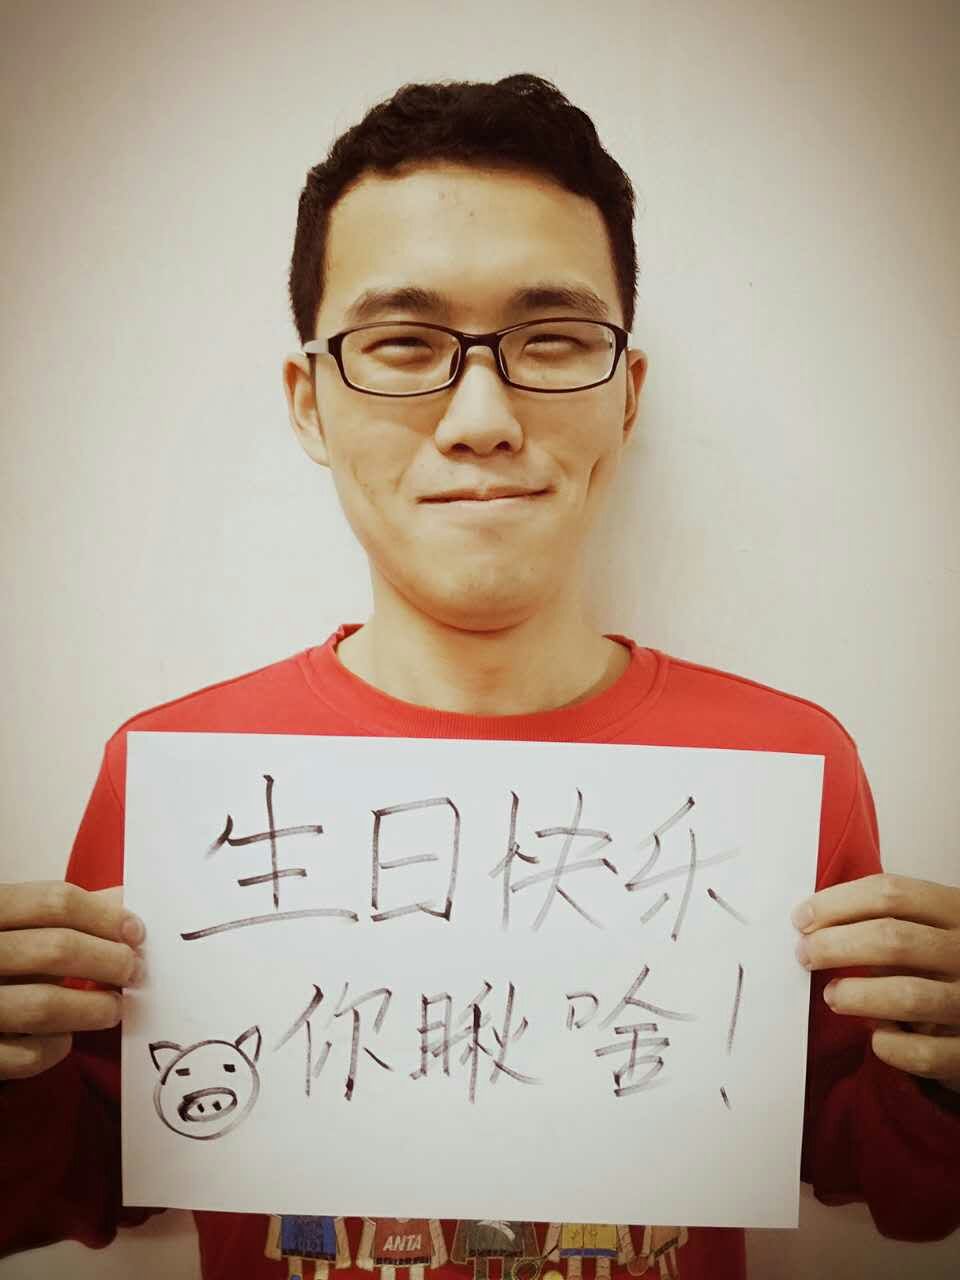 生日快乐
你瞅啥!
ANTA